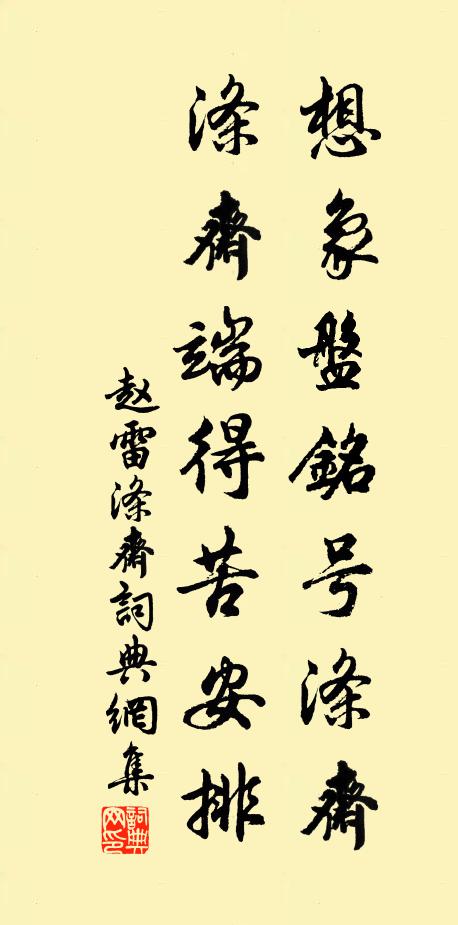 想象盤銘号涤齋
涤齋端得苦安排
赵雷涤齋詞典網集
詞典網印